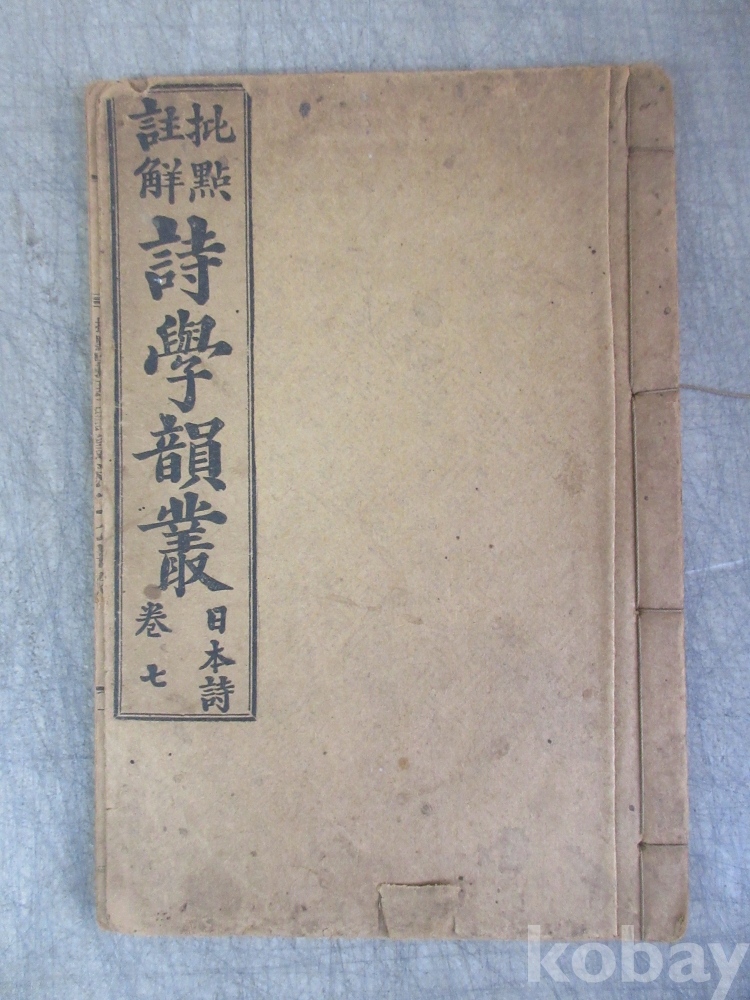 批點
註解
詩學韻叢
日本詩
卷七
kobay